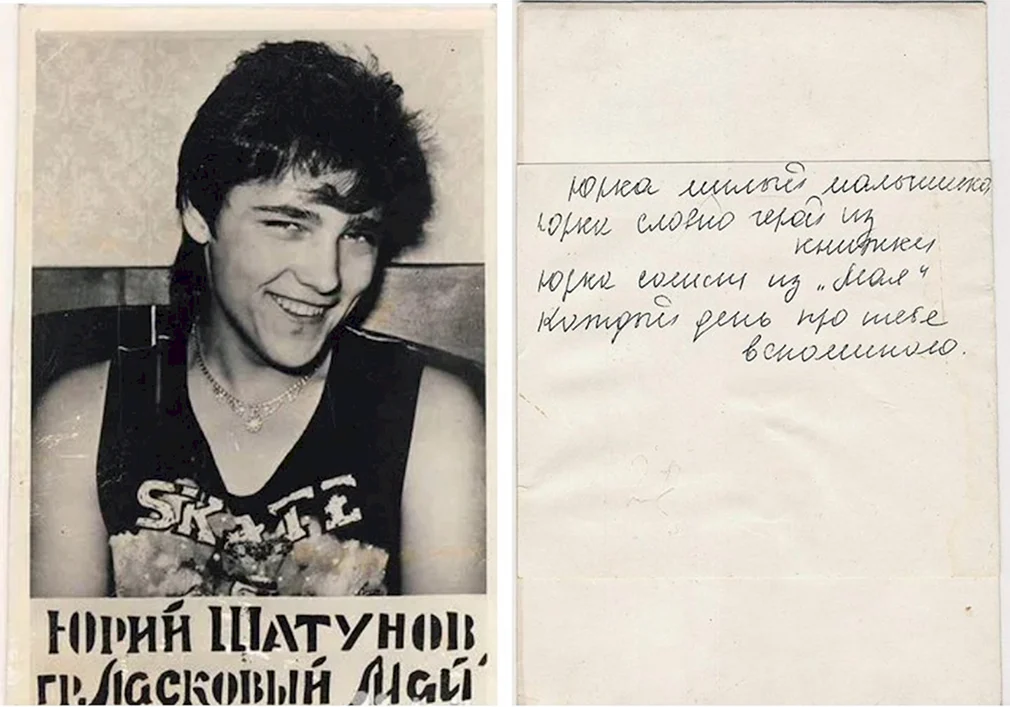 SKATE
ЮРИЙ ШАТУНОВ
ГР. Ласковый Май"
Юрка милый мальчишка
Юрка словно герой из
книжки
Юрка солист из „Мая"
Каждый день про тебе
вспоминаю.